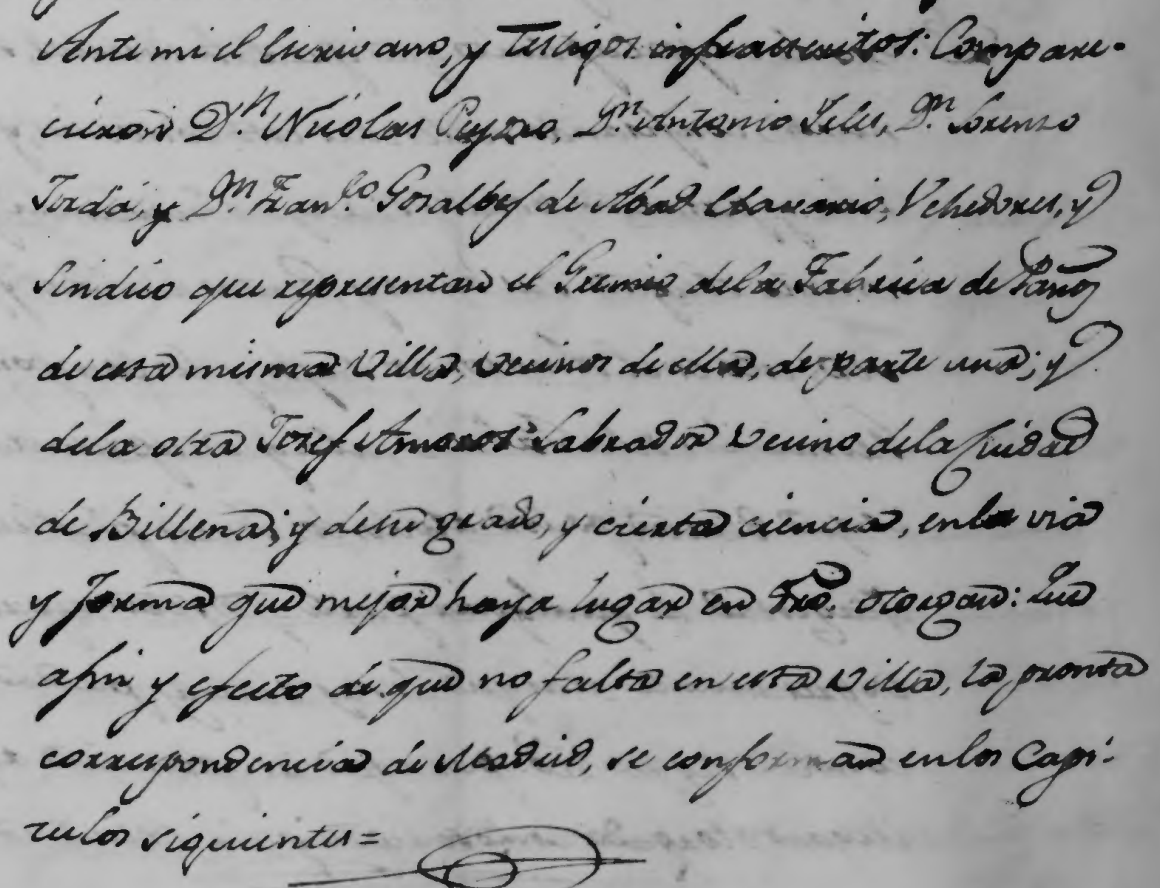 Ante mi el Escrivano, y Testigos infraescritos: Compare-
cieron Dn. Nicolas Peydro, Dn. Antonio Feliu, Dn. Lorenzo
Jordá, y Dn. Franco. Gosalbes de Abad Clavario, Vehedores, y
Sindico que representan el Gremio dela Fabrica de Paños
de esta misma Villa, vecinos de ella, de parte una; y
dela otra Josef Amoros Labrador vecino dela Ciudad
de Billena; y desu grado, y cierta ciencia, enla via
y forma que mejor haya lugar en dro. otorgan: Que
afin y efecto de que no falta en esta Villa, la pronta
correspondencia de Madrid, se conforman enlos Capi-
tulos siguientes=